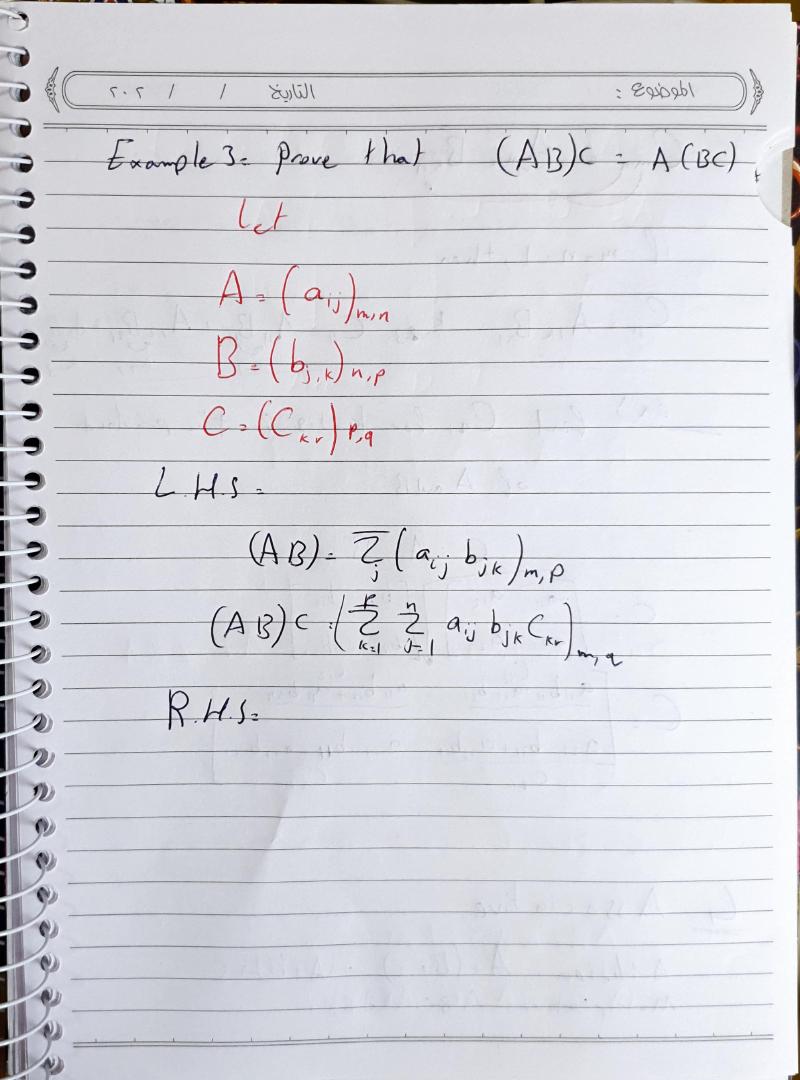 الموضوع : التاريخ / / ٢٠٢
Example 3= Prove that (AB)C = A(BC)
let
A = (a_{ij})_{m,n}
B = (b_{j,k})_{n,p}
C = (C_{kr})_{p,q}
L.H.S =
(AB) = Σ_{j} (a_{ij} b_{jk})_{m,p}
(AB)C = (Σ_{k=1}^{p} Σ_{j=1}^{n} a_{ij} b_{jk} C_{kr})_{m,q}
R.H.S =